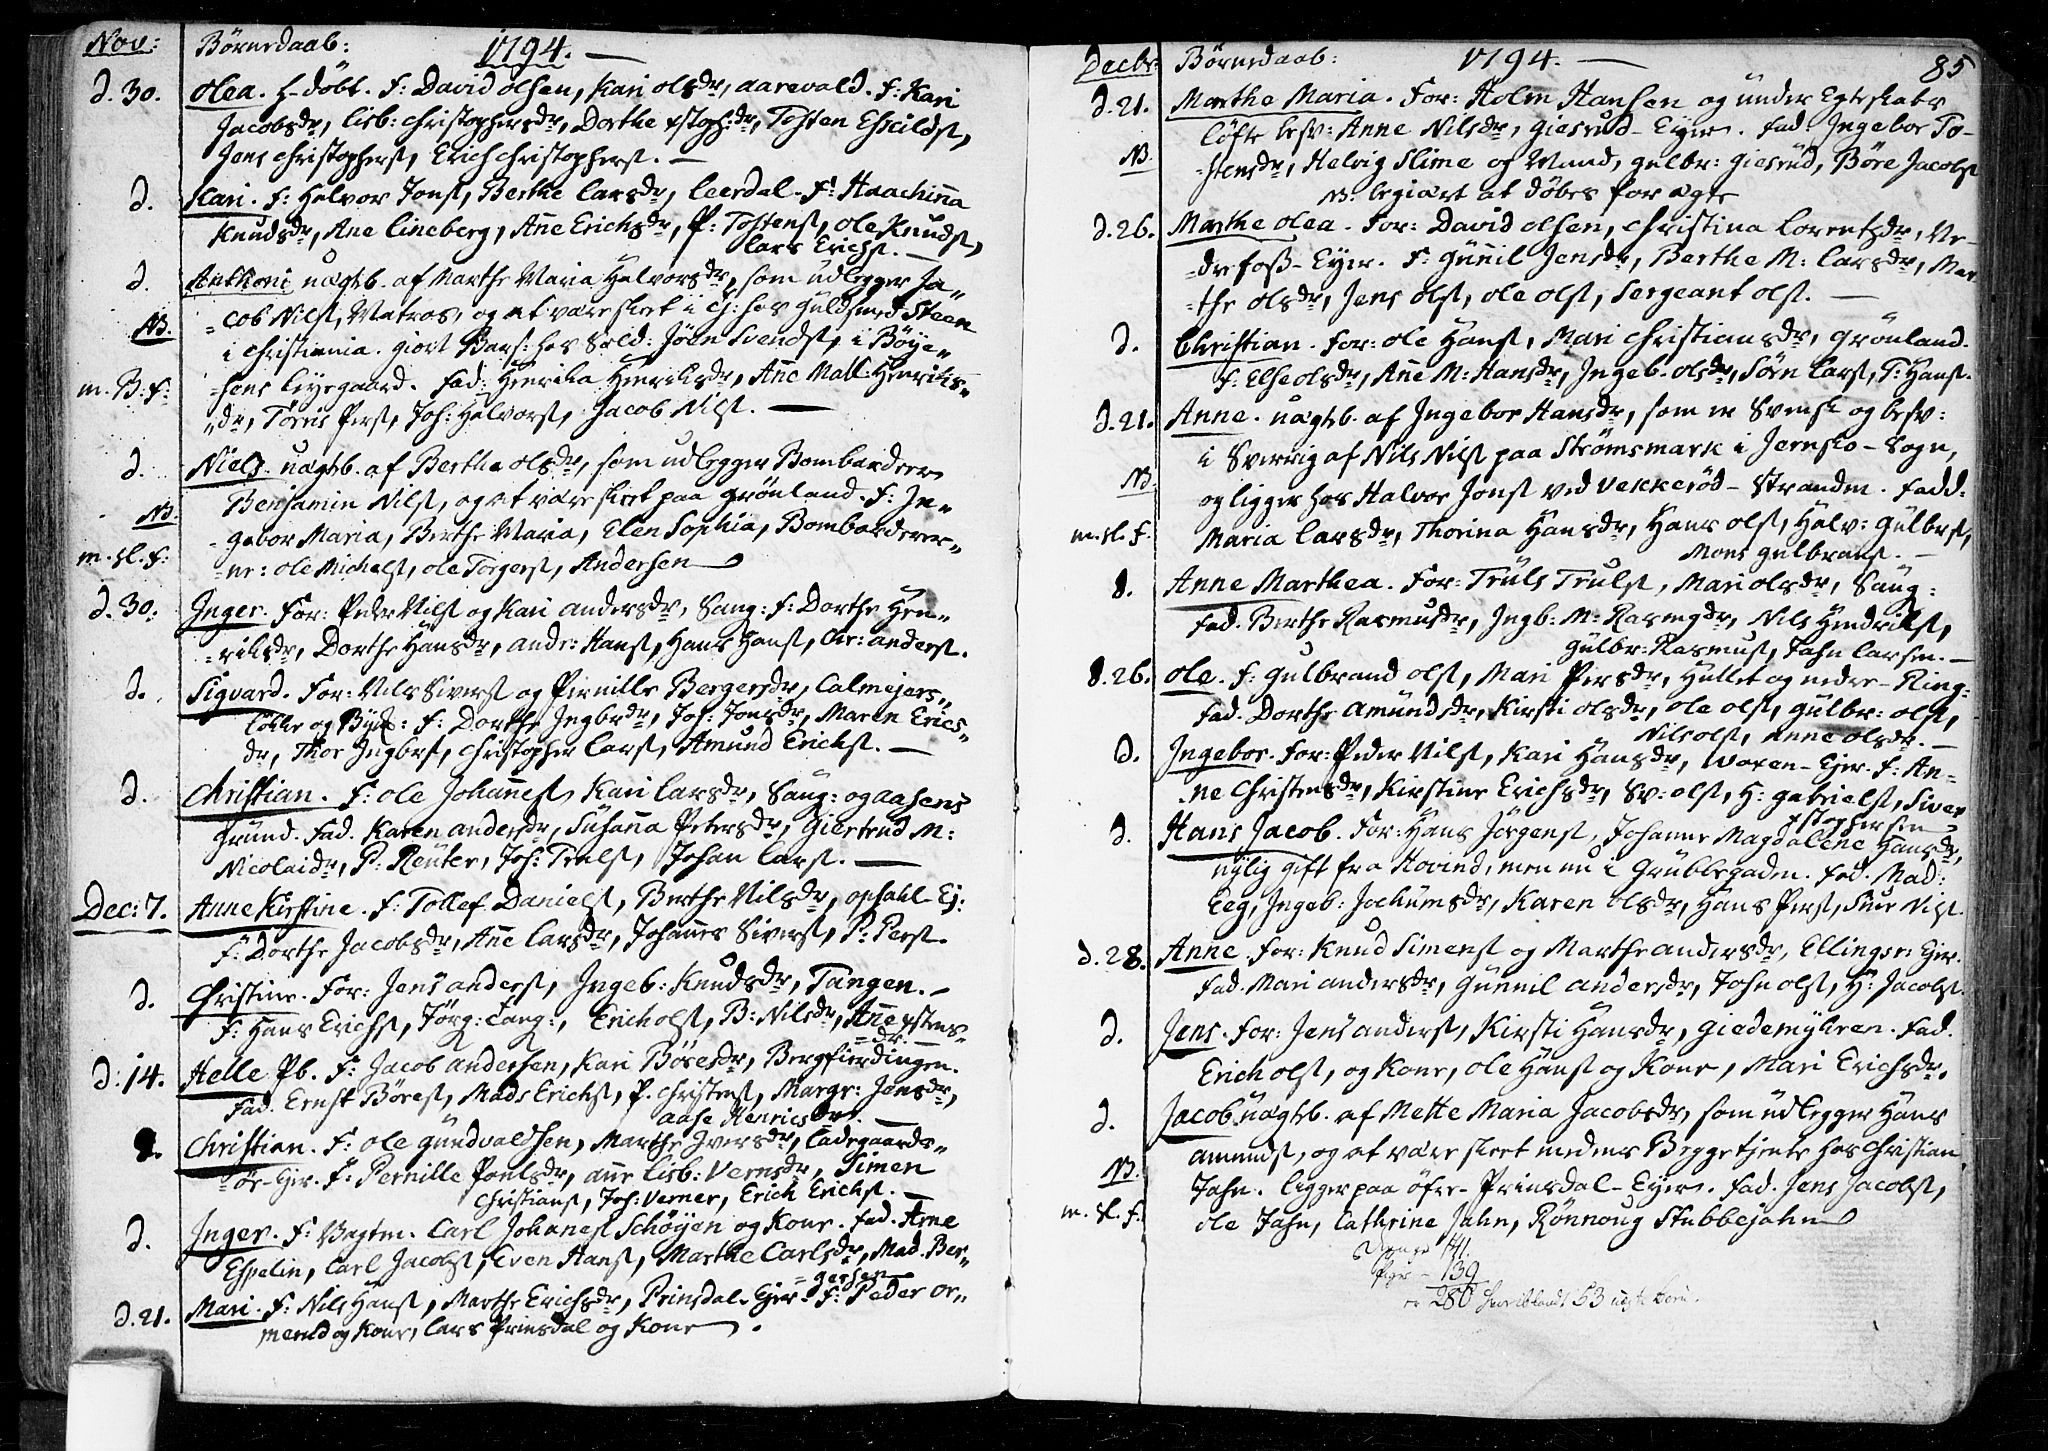 Nov: Børnedaab: 1794.
d. 30. Olea. h-døbt. F: David Olsen, Kari Olsdr, Aarevald. F: Kari
Jacobsdr, Lisb: Christophersdr, Dorthe xstophdr, Tosten Eskildst,
Jens Christopherst, Erich Christopherst.
d. Kari. F: Halvor Jonst, Berthe Larsdr, Leerdal. F: Haachinna
Knudsdr, Ane Lineberg, Anne Erichsdr, P: Tostenst, Ole Knudst,
Lars Erichst.
d. Anthoni uægtb. af Marthe Maria Halvorsdr, som udlegger Ja-
cob Nilst, Matros, og at være skeet i hos Guldsmed Steen
NB. i Christiania. giort Bars: hos Sold: Jöen Svendst, i Böye-
m. B. f: sens Leyegaard. Fad: Henrika Henriksdr, Anne Mall: Henriks-
dr, Tørris Perst, Joh: Halvorst, Jacob Nilst.
d. Niels. uægtb. af Berthe Olsdr, som udlegger Bombarderer
Benjamin Nilst, og at være skeet paa Grønland. F: In-
NB. gebor Maria, Berthe Maria, Elen Sophia, Bombarderer-
m. sl. f: ne: Ole Michelst, Ole Torgerst, Andersen
d. 30. Inger. For: Peder Nilst og Kari Andersdr, Saug: F: Dorthe Hen-
riksdr, Dorthe Hansdr, Ande: Hanst, Hans Hanst, Chr: Anderst.
d. Sigvard. For: Nils Siverst og Pernille Bergersdr, Calmejers
løkke og Byef: F: Dorthe Ingebrdr, Joh: Jonsdr, Maren Erics-
dr, Thor Ingebrst, Christopher Larst, Amund Erichst.
d. Christian. F: Ole Johannest, Kari Larsdr, Saug: og Aasens
Grund. Fad. Karen Andersdr, Susanna Petersdr, Giertrud M:
Nicolaidr, P: Reuter, Joh: Trulst, Johan Larst.
Dec: 7. Anne Kirstine. F: Tollef Danielst, Berthe Nilsdr, Opsahl-Ej:
F: Dorthe Jacobsdr, Anne Larsdr, Johannes Siverst, P: Perst.
d. Christine. For: Jens Anderst, Ingeb: Knudsdr, Tangen.
F: Hans Erichst, Jörg: Lang:, Erich Olst, B: Nilsdr, Anne xstens-
dr.
d. 14. Helle Pb. F: Jacob Andersen, Kari Böresdr, Bergfierdingen.
Fad. Ernst Börest, Mads Erichst, P. Christenst, Margr: Jensdr,
Aase Henricsdr.
d. Christian. F: Ole Gundvaldsen, Marthe Iversdr, Ladegaards-
öe-Ejer. F: Pernille Poulsdr, Anne Lisb: Vernsdr, Simen
Christianst, Joh: Verner, Erich Erichst.
d. Inger. F: Vagtm. Carl Johannest Schöyen og Kone. Fad. Arne
Espelin, Carl Jacobst, Even Hanst, Marthe Carlsdr, Mad. Ber-
gersen
d. 21. Mari. F: Nils Hanst, Marthe Erichsdr, Prinsdal-Ejer. F: Peder Or-
merud og Kone, Lars Prinsdal og Kone.
Decbr Børnedaab: 1794. 85
d. 21. Marthe Maria. For: Holm Hansen og under Egteskabs
løfte besv: Anne Nilsdr, Giesrud-Eyer. Fad: Ingebor To-
NB. stensdr, Helvig Slime og Mand, Gulbr: Giesrud, Böre Jacobst
NB. begiært at døbes for ægte
d. 26. Marthe Olea. For: David Olsen, Christina Lorentzdr, Ne-
drefoss-Eyer. F: Gunnil Jensdr, Berthe M: Larsdr, Mar-
the Olsdr, Jens Olst, Ole Olst, Sergeant Olst.
d. Christian. For: Ole Hanst, Mari Christiansdr, Grønland.
F: Else Olsdr, Anne M: Hansdr, Ingeb. Olsdr, Sörn Larst, P: Hanst.
d. 21. Anne. uægtb. af Ingebor Hansdr, som er Svensk og besv:
i Sverrig af Nils Nilst paa Strømsmark i Jernsko-Sogn,
NB. og ligger hos Halvor Jonst ved Vekkerød-Stranden. Fadd:
m. sl. f. Maria Larsdr, Thorina Hansdr, Hans Olst, Halv: Gulbrst,
Mons Gulbranst.
d. Anne Marthea. For: Truls Trulst, Mari Olsdr, Saug:
Fad. Berthe Rasmusdr, Ingb: M: Rasmgdr, Nils Hendrikst,
Gulbr: Rasmust, Jahn Larsen.
d. 26. Ole. F: Gulbrand Olst, Mari Persdr, Hullet og nedre-Ring:
Fad. Dorthe Amundsdr, Kirsti Olsdr, Ole Olst, Gulbr: Olst,
Nils Olst, Anne Olsdr.
d. Ingebor. For: Peder Nilst, Kari Hansdr, Voxen-Ejer. F: An-
ne Christensdr, Kirstine Erichsdr, Sv: Olst, H: Gabrielst, Siver
xstophersen
d. Hans Jacob. For: Hans Jörgenst, Johanne Magdalene Hansdr,
nylig gift fra Hovind, men nu i Grubbegaden. Fad. Mad:
Eeg, Ingeb: Jochumsdr, Karen Olsdr, Hans Perst, Siver Nilst.
d. 28. Anne. For: Knud Simenst og Marthe Andersdr, Ellingsr: Ejer.
Fad. Mari Andersdr, Gunnil Andersdr, John Olst, H: Jacobst.
d. Jens. For: Jens Anderst, Kirsti Hansdr, Giedemyhren. Fad.
Erich Olst, og Kone, Ole Hanst og Kone, Mari Erichsdr.
d. Jacob. uægtb. af Mette Maria Jacobsdr, som udlegger Hans
Amundst, og at være skeet medens Begge tjente hos Christian
NB. Jahn. ligger paa öfre-Prinsdal-Eyer. Fad. Jens Jacobst,
m. sl. f. Ole Jahn, Cathrine Jahn, Rønnoug Stubbejahn
Drenge 141.
Piger 139
280 hvoriblandt 53 uægte börn.